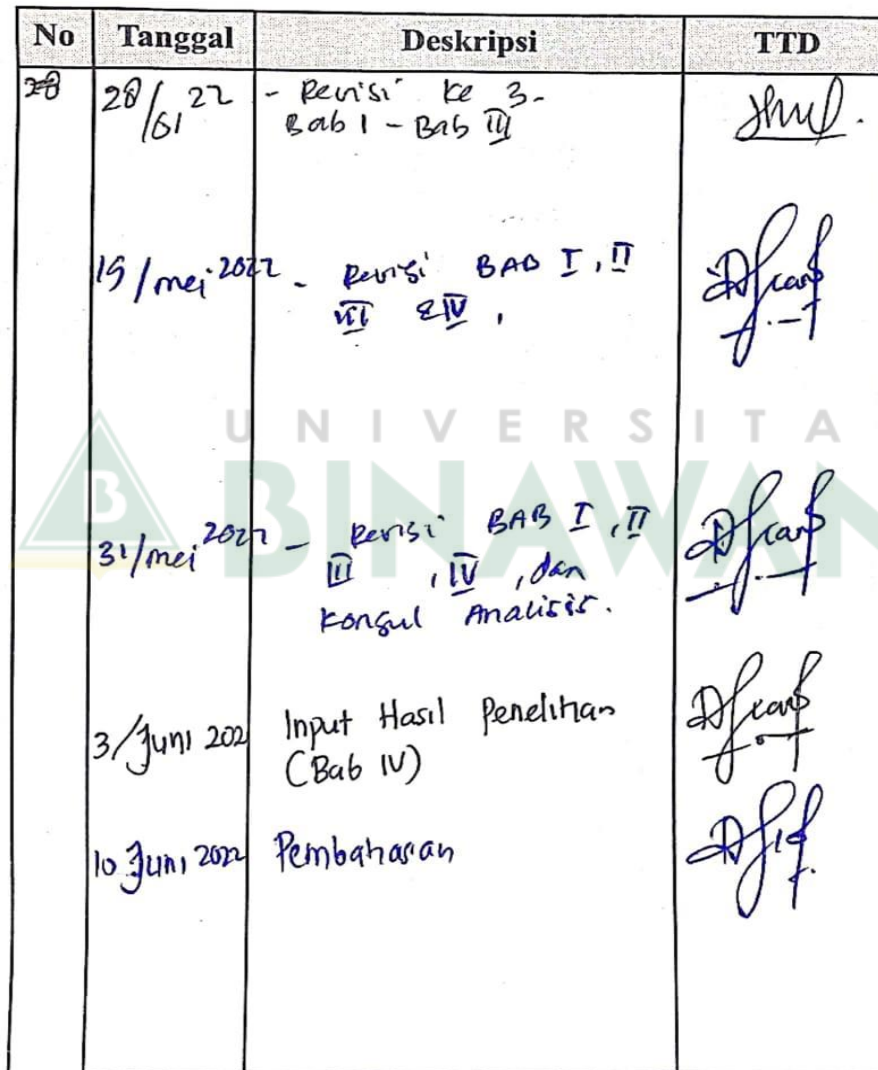 No Tanggal Deskripsi TTD
28 28/01 22 - Revisi ke 3-
Bab I - Bab III
19/mei 2022 - Revisi BAB I, II
III & IV,
UNIVERSITA
BINAWAN
B
31/mei 2022 - Revisi BAB I, II
III, IV, dan
Konsul Analisis.
3/Juni 202 Input Hasil Penelitian
(Bab IV)
10 Juni 2022 Pembahasan